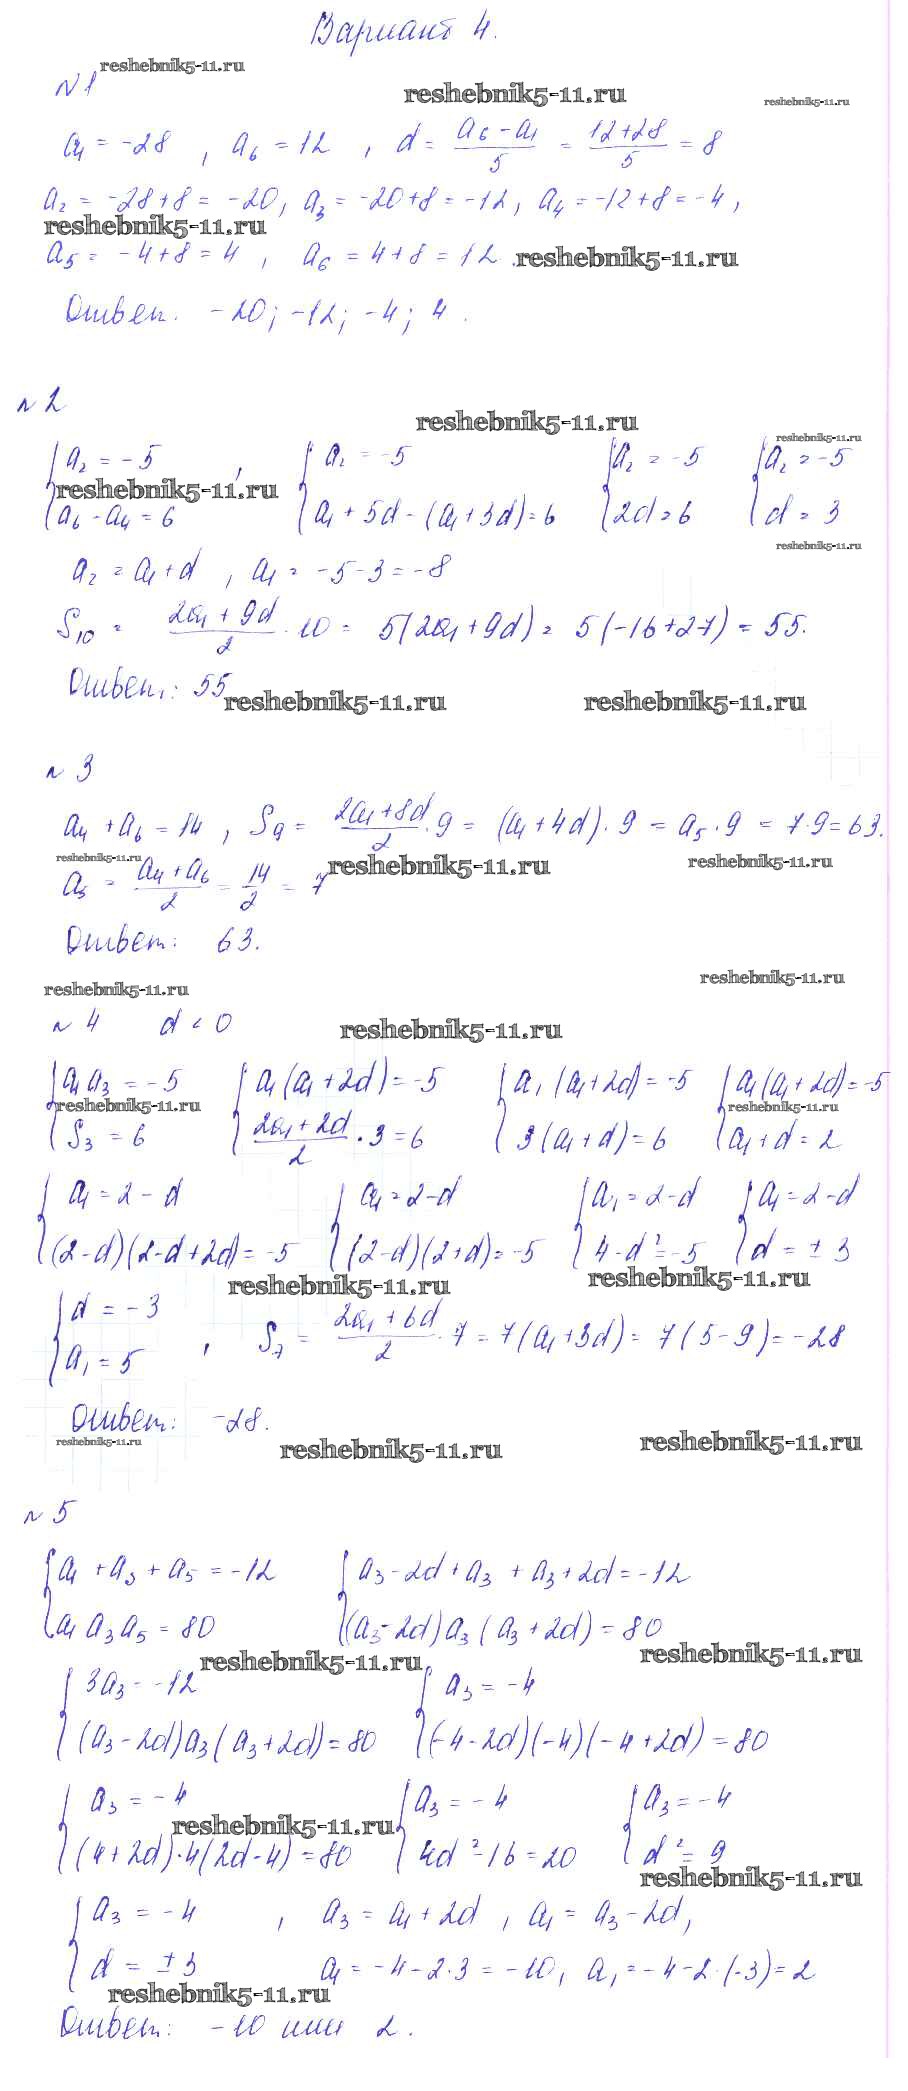 Вариант 4.
reshebnik5-11.ru
№1
reshebnik5-11.ru
reshebnik5-11.ru
a₁ = -28 , a₆ = 12 , d = (a₆ - a₁)/5 = (12+28)/5 = 8
a₂ = -28+8 = -20, a₃ = -20+8 = -12, a₄ = -12+8 = -4,
reshebnik5-11.ru
a₅ = -4+8 = 4 , a₆ = 4+8 = 12 .
reshebnik5-11.ru
Ответ. -20; -12; -4; 4.
№2
reshebnik5-11.ru
reshebnik5-11.ru
{a₂ = -5 , {a₂ = -5 {a₂ = -5 {a₂ = -5
reshebnik5-11.ru
a₆ - a₄ = 6 a₁ + 5d - (a₁ + 3d) = 6 2d = 6 d = 3
reshebnik5-11.ru
a₂ = a₁ + d , a₁ = -5 - 3 = -8
S₁₀ = (2a₁ + 9d)/2 · 10 = 5(2a₁ + 9d) = 5(-16 + 27) = 55.
Ответ: 55
reshebnik5-11.ru
reshebnik5-11.ru
№3
a₄ + a₆ = 14 , S₉ = (2a₁ + 8d)/2 · 9 = (a₁ + 4d) · 9 = a₅ · 9 = 7 · 9 = 63.
reshebnik5-11.ru
reshebnik5-11.ru
reshebnik5-11.ru
a₅ = (a₄ + a₆)/2 = 14/2 = 7
Ответ: 63.
reshebnik5-11.ru
reshebnik5-11.ru
№4 d < 0
reshebnik5-11.ru
{a₁a₃ = -5 {a₁(a₁ + 2d) = -5 {a₁(a₁ + 2d) = -5 {a₁(a₁ + 2d) = -5
reshebnik5-11.ru
reshebnik5-11.ru
S₃ = 6 (2a₁ + 2d)/2 · 3 = 6 3(a₁ + d) = 6 a₁ + d = 2
{a₁ = 2 - d {a₁ = 2 - d {a₁ = 2 - d {a₁ = 2 - d
(2-d)(2-d+2d) = -5 (2-d)(2+d) = -5 4 - d² = -5 d = ± 3
reshebnik5-11.ru
reshebnik5-11.ru
{d = -3
a₁ = 5 , S₇ = (2a₁ + 6d)/2 · 7 = 7(a₁ + 3d) = 7(5 - 9) = -28
Ответ: -28.
reshebnik5-11.ru
reshebnik5-11.ru
reshebnik5-11.ru
№5
{a₁ + a₃ + a₅ = -12 {a₃ - 2d + a₃ + a₃ + 2d = -12
a₁a₃a₅ = 80 (a₃ - 2d)a₃(a₃ + 2d) = 80
reshebnik5-11.ru
reshebnik5-11.ru
{3a₃ = -12 {a₃ = -4
(a₃ - 2d)a₃(a₃ + 2d) = 80 (-4 - 2d)(-4)(-4 + 2d) = 80
{a₃ = -4 {a₃ = -4 {a₃ = -4
reshebnik5-11.ru
(4 + 2d)·4(2d - 4) = 80 4d² - 16 = 20 d² = 9
reshebnik5-11.ru
{a₃ = -4 , a₃ = a₁ + 2d , a₁ = a₃ - 2d,
d = ± 3 a₁ = -4 - 2·3 = -10, a₁ = -4 - 2·(-3) = 2
reshebnik5-11.ru
Ответ: -10 или 2.